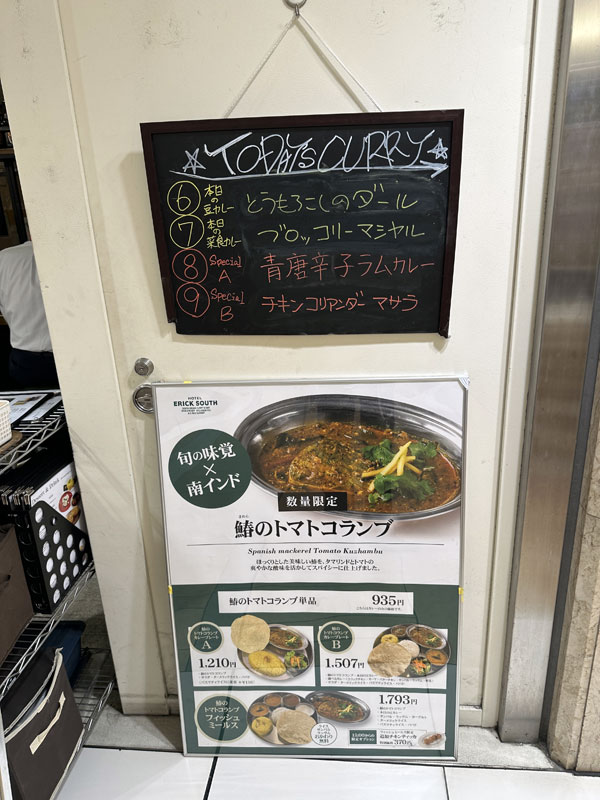 ☆TODAY'S CURRY☆
⑥ 本日の豆カレー とうもろこしのダール
⑦ 本日の菜食カレー ブロッコリーマシヤル
⑧ Special A 青唐辛子ラムカレー
⑨ Special B チキンコリアンダーマサラ
HOTEL
ERICK SOUTH
旬の味覚
×
南インド
数量限定
鰆のトマトコランブ
Spanish mackerel Tomato Kuzhambu
ほっくりとした美味しい鰆を、タマリンドとトマトの
爽やかな酸味を活かしてスパイシーに仕上げました。
鰆のトマトコランブ単品 935円
鰆の
トマトコランブ
カレープレート
A
1,210円
鰆の
トマトコランブ
カレープレート
B
1,507円
鰆の
トマトコランブ
フィッシュ
ミールス
1,793円
ライス
サンバル
ラッサム
おかわり
無料
追加チキンティッカ
370円